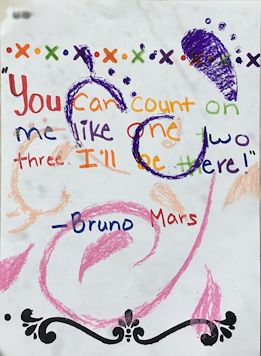 "You can count on
me like one two
three. I'll be there!"
-Bruno Mars